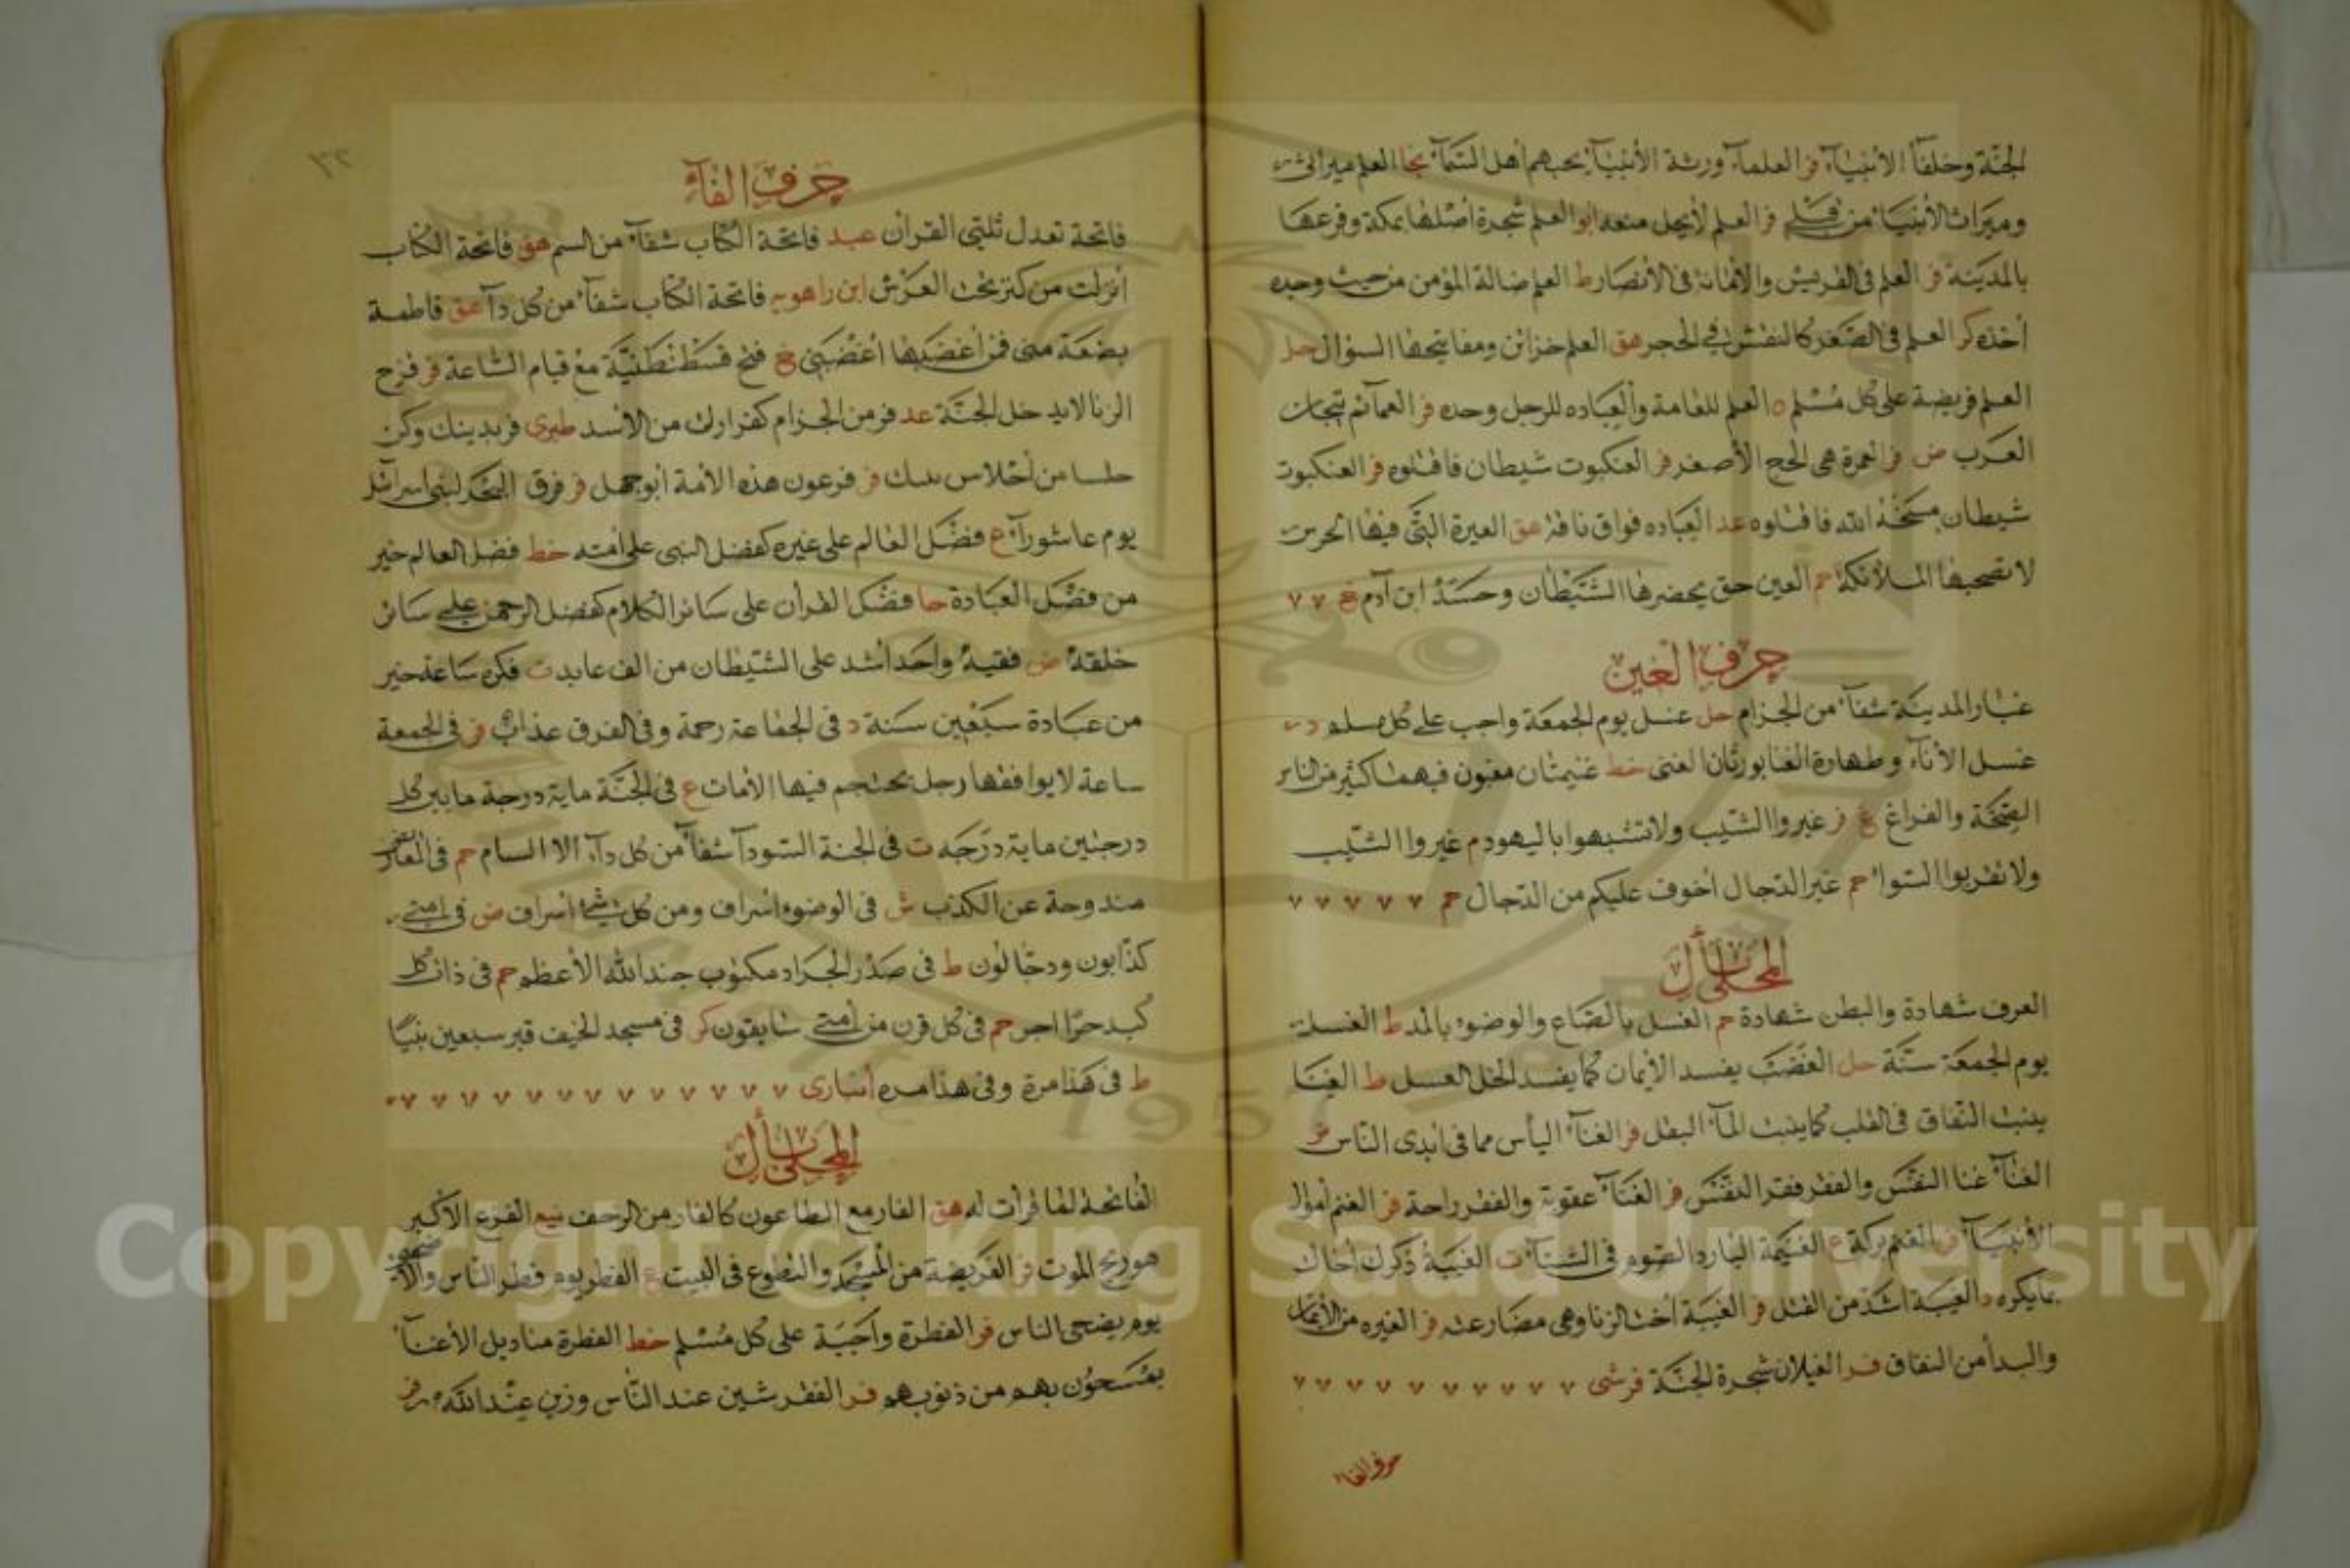 الجنة وخلفأ الأنبيآء فر العلمآء ورثة الأنبيآء يحبهم أهل السمآء نجا العلم ميراثى
وميراث الأنبيآء من قبلي فر العلم لأيحل منعه ابو العلم شجرة أصلها بمكة وفرعها
بالمدينة فر العلم فى القريش والأمانة فى الأنصار ط العلم ضالة المؤمن من حيث وجده
أخذه كر العلم فى الصغر كالنقش في الحجر هق العلم خزائن ومفاتيحها السؤال حل
العلم فريضة على كل مسلم ه العلم للعامة والعباده للرجل وحده فر العمآئم تيجان
العرب ض فر العمرة هى الحج الأصغر فر العنكبوت شيطان فاقتلوه فر العنكبوت
شيطان مسخه الله فاقتلوه عد العياده فواق ناقة هق العيرة التى فيها الجرس
لا تصحبها الملائكة حم العين حق يحضرها الشيطان وحسد ابن آدم غ
حرف الغين
غبار المدينة شفآء من الجزام حل غسل يوم الجمعة واجب على كل مسلم د
غسل الأنآء وطهارة الفنا يورثان الغنى خط غنيمتان مغبون فيهما كثير من الناس
الصحة والفراغ غ فر غيروا الشيب ولا تشبهوا باليهود م غيروا الشيب
ولا تقربوا السوا حم غير الدجال أخوف عليكم من الدجال حم
المحلى بأل
الغرق شهادة والبطن شهادة حم الغسل بالصاع والوضوء بالمد ط الغسل
يوم الجمعة سنة حل الغضب يفسد الأيمان كما يفسد الخل العسل ط الغنا
ينبت النفاق فى القلب كما ينبت المآء البقل فر الغنآء اليأس مما فى ايدى الناس فر
الغنآء غنا النفس والفقر فقر النفس فر الغنآء عقوبة والفقر راحة فر الغنم أموال
الأنبيآء فر الغنم بركة ع الغنيمة البارد الصوم فى الشتآء ت الغيبة ذكرك أخاك
بما يكره د الغيبة اشد من القتل فر الغيبة أخت الزنا وهى مضارعته فر الغيره من الأيمان
والبدأ من النفاق فر الغيلان شجرة الجنة قرشى
حرف الفاء
١٣٢
حرف الفآء
فاتحة تعدل ثلثى القرأن عبد فاتحة الكتاب شفآء من السم هق فاتحة الكتاب
أنزلت من كنز تحت العرش ابن راهويه فاتحة الكتاب شفآء من كل دآء هق فاطمة
بضعة منى فمن أغضبها أغضبنى خ فتح قسطنطنية مع قيام الساعة فر فرخ
الزنا لا يدخل الجنة عد فر من الجزام كفرارك من الأسد طبرى فر بدينك وكن
حلسا من أحلاس بيتك فر فرعون هذه الأمة أبو جهل فر فرق البحر لبنى اسرائل
يوم عاشورآء ع فضل العالم على غيره كفضل النبى على امته خط فضل العالم خير
من فضل العبادة حا فضل القرأن على سائر الكلام كفضل الرحمن على سائر
خلقه ض فقيه واحد أشد على الشيطان من الف عابد ت فكرة ساعة خير
من عبادة سبعين سنة د فى الجماعة رحمة وفى الفرق عذاب فر فى الجمعة
ساعة لا يوافقها رجل يحتجم فيها الأمات ع فى الجنة ماية درجة ما بين كل
درجتين ماية درجه ت فى الحبة السودآء شفآء من كل دآء الا السام حم فى المعاريض
مندوحة عن الكذب ش فى الوضوء أسراف ومن كل شئ أسراف ض فى امتى
كذابون ودجالون ط فى صدر الجراد مكتوب جند الله الأعظم حم فى ذات كل
كبد حرا اجر حم فى كل قرن من أمتى سابقون كر فى مسجد الخيف قبر سبعين نبيا
ط فى هذا مرة وفى هذا مره أنبارى
المحلى بأل
الفاتحة لما قرأت له هق الفار مع الطاعون كالفار من الزحف نيع الفزع الأكبر
هو ذبح الموت فر الفريضة من المسجد والتطوع فى البيت ع الفطر يوم فطر الناس والأضحى
يوم يضحى الناس فر الفطرة واجبة على كل مسلم خط الفطرة مناديل الأغنيآء
يمسحون بهم من ذنوبهم فر الفقر شين عند الناس وزين عند الله
Copyright © King Saud University
1957